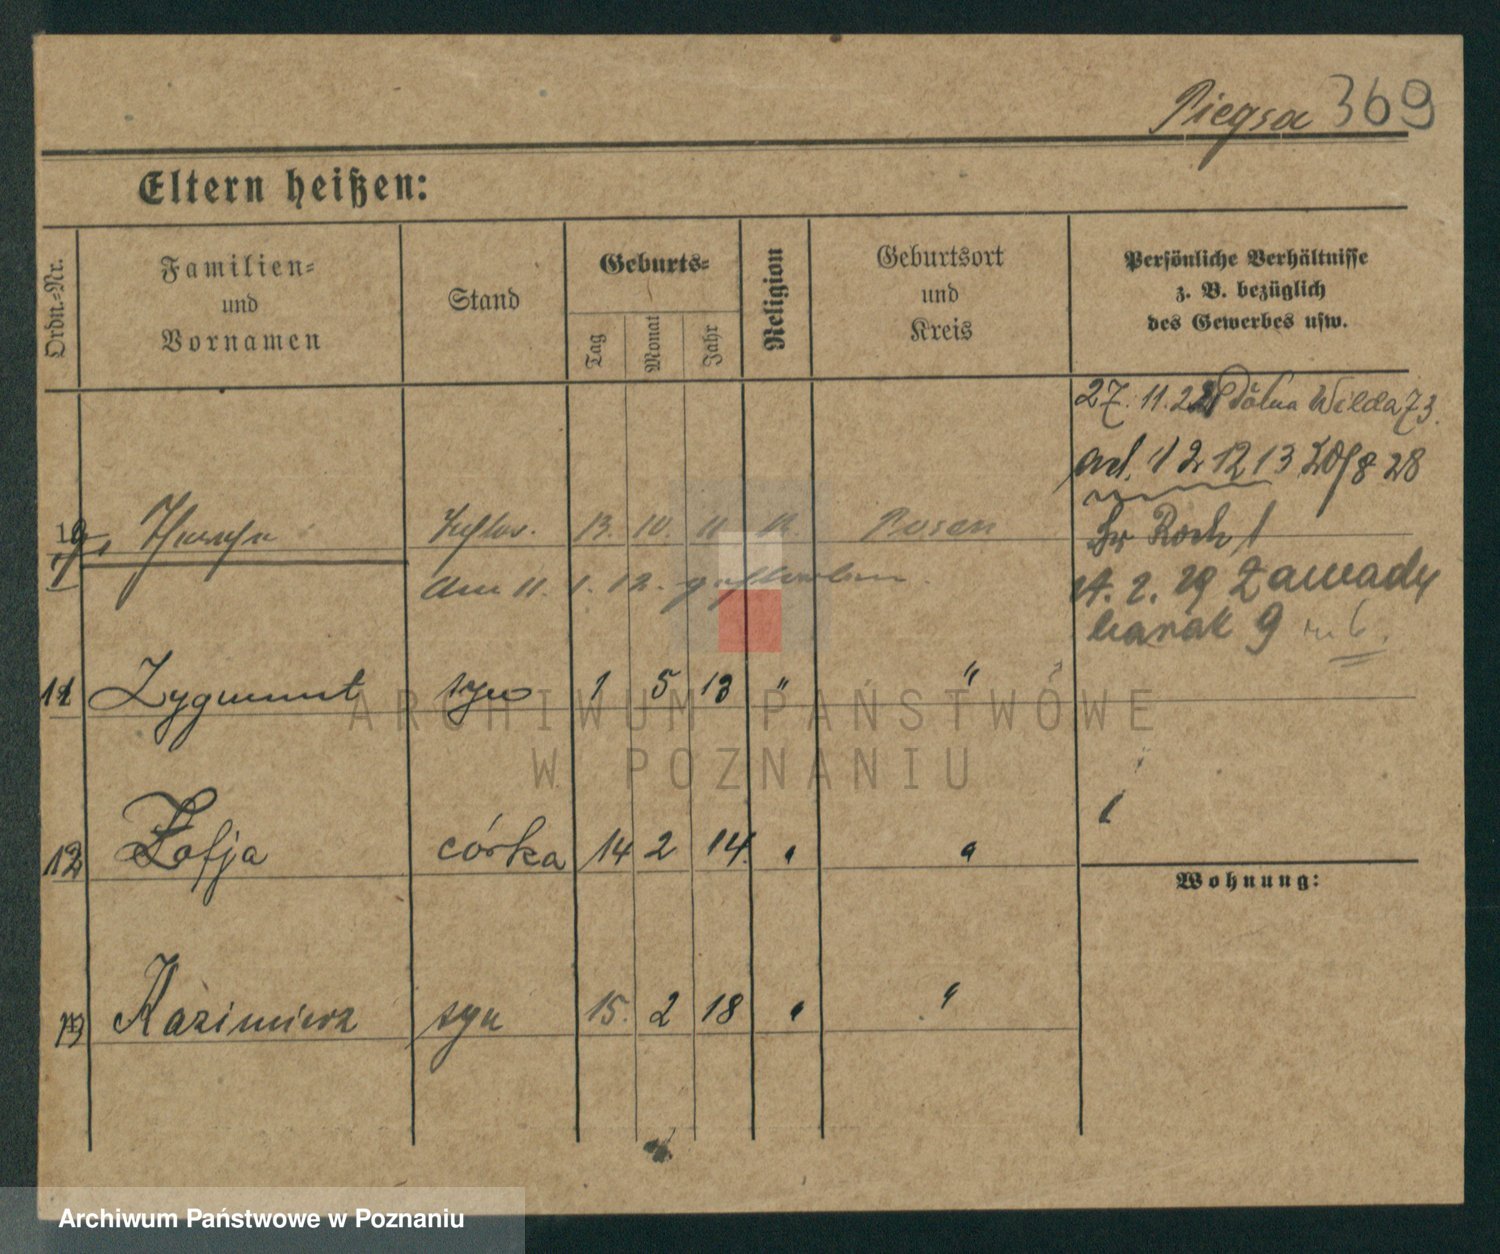 Piegsa 369
Eltern heißen:
Ordn.=Nr.
Familien=
und
Vornamen
Stand
Geburts=
Tag
Monat
Jahr
Religion
Geburtsort
und
Kreis
Persönliche Verhältnisse
z. B. bezüglich
des Gewerbes usw.
27. 11. 22 Dolna Wilda 73.
12 12 13 28
Św Roch 1
2. 29 Zawady
barak 9 m 6.
10 13. 10. 11 Posen
Am 11. 1. 12. gestorben.
11 Zygmunt syn 1 5 13 " "
12 Zofja córka 14 2 14 " "
13 Kazimierz syn 15. 2 18 " "
Wohnung:
ARCHIWUM PAŃSTWOWE
W POZNANIU
Archiwum Państwowe w Poznaniu